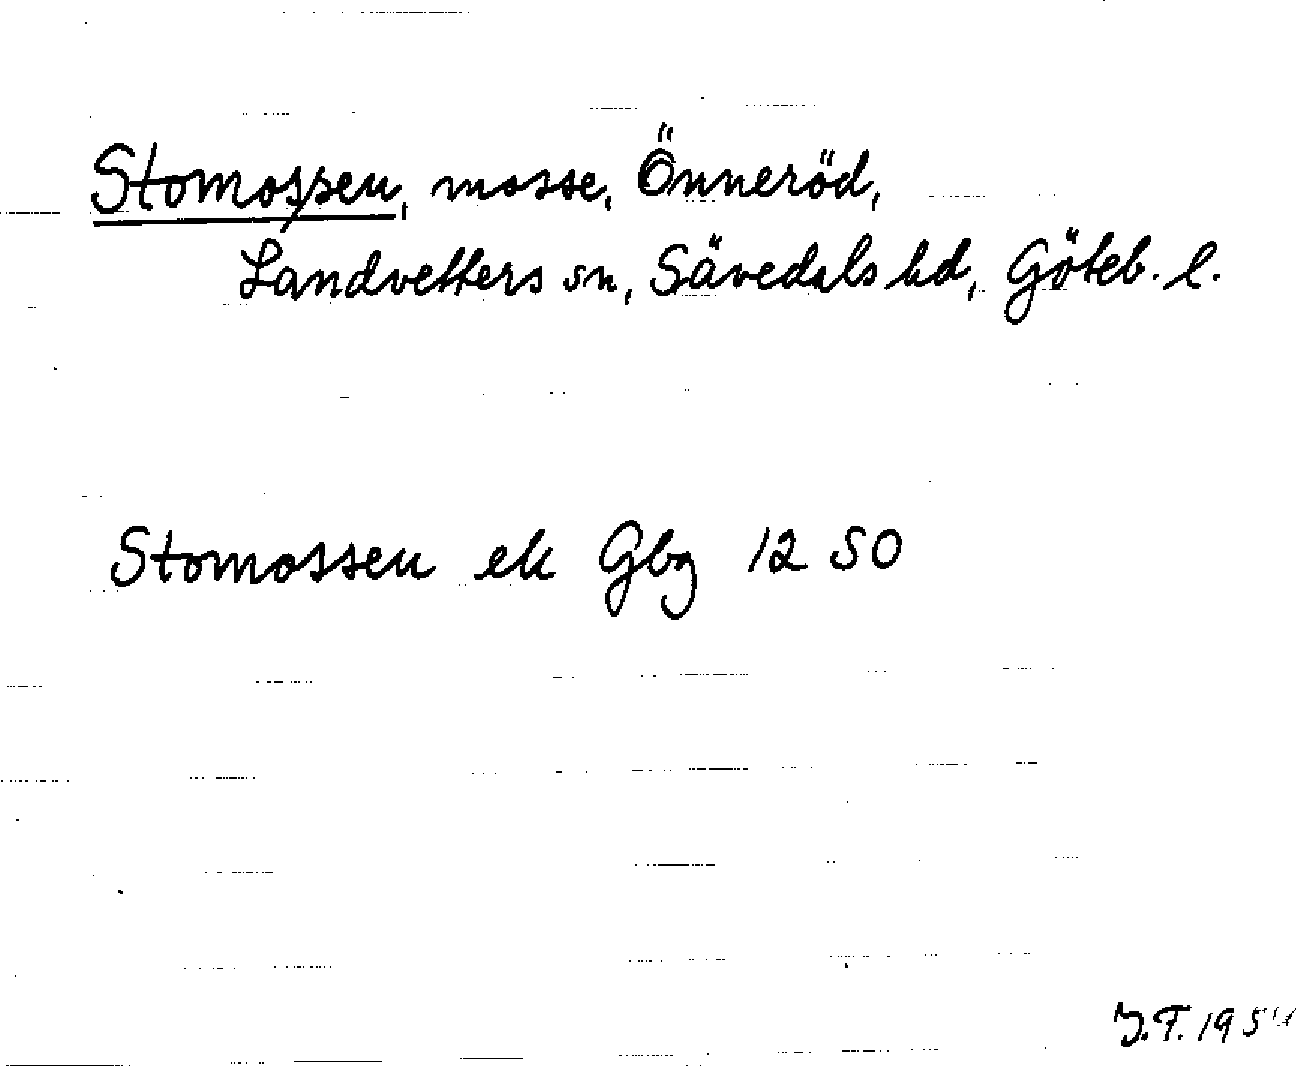 Stomossen, mosse, Önneröd,
Landvetters sn, Sävedals hd, Göteb. l.
Stomossen ek Gbg 12 50
J.F. 1954